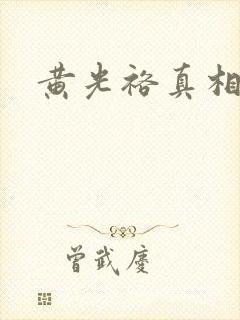 黄光裕真相
曾武慶